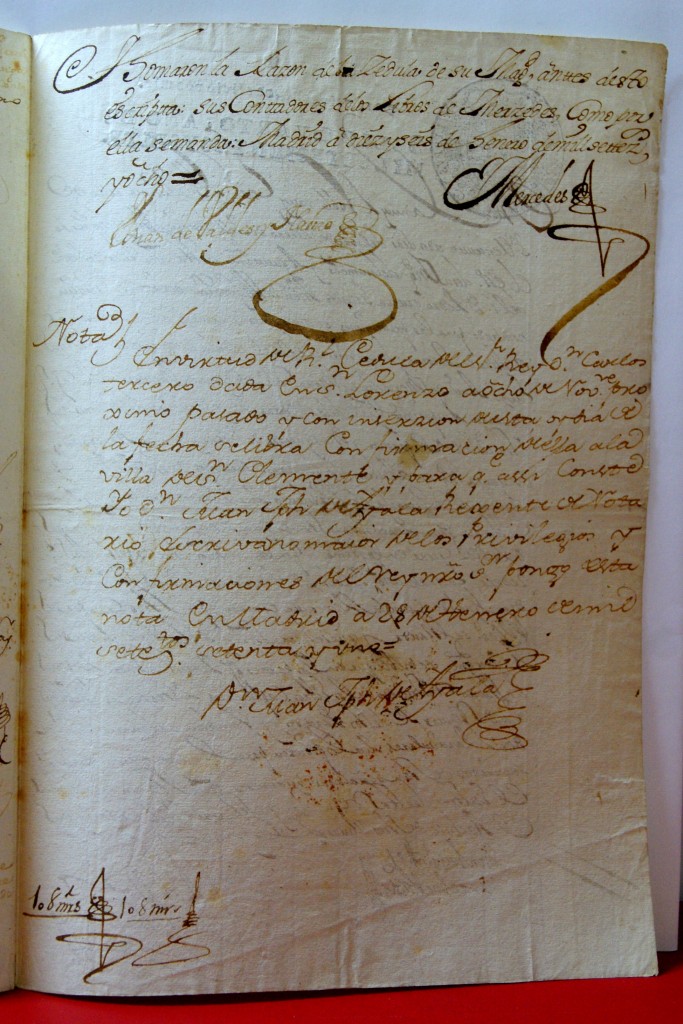 Tomaron la Razon de la Zedula de su Magd. antes desto
escripta: sus Contadores delos Libros de Merzedes, Como por
ella semanda: Madrid â diez y seis de henero demill settezs.
y ôcho =
Mercedes
Juan de y Blanco
Nota
En virtud de Rl. Cedula del Sr. Rey Dn. Carlos
tercero dada En Sn. Lorenzo a ôcho de Nove. pro
ximo pasado y con inserzion de esta oy dia de
la fecha se libra Confirmacion della ala
villa de Sn. Clemente y para q. assi Conste
Yo Dn. Juan Jph de Ayala Regente de Nota
rio Escrivano maior de los Privilegios y
Confirmaciones del Rey nro. Sr. pongo esta
nota En Madrid à 28 de Henero de mil
setezos. setenta y uno =
Dn. Juan Jph de Ayala
108 mrs 108 mrs